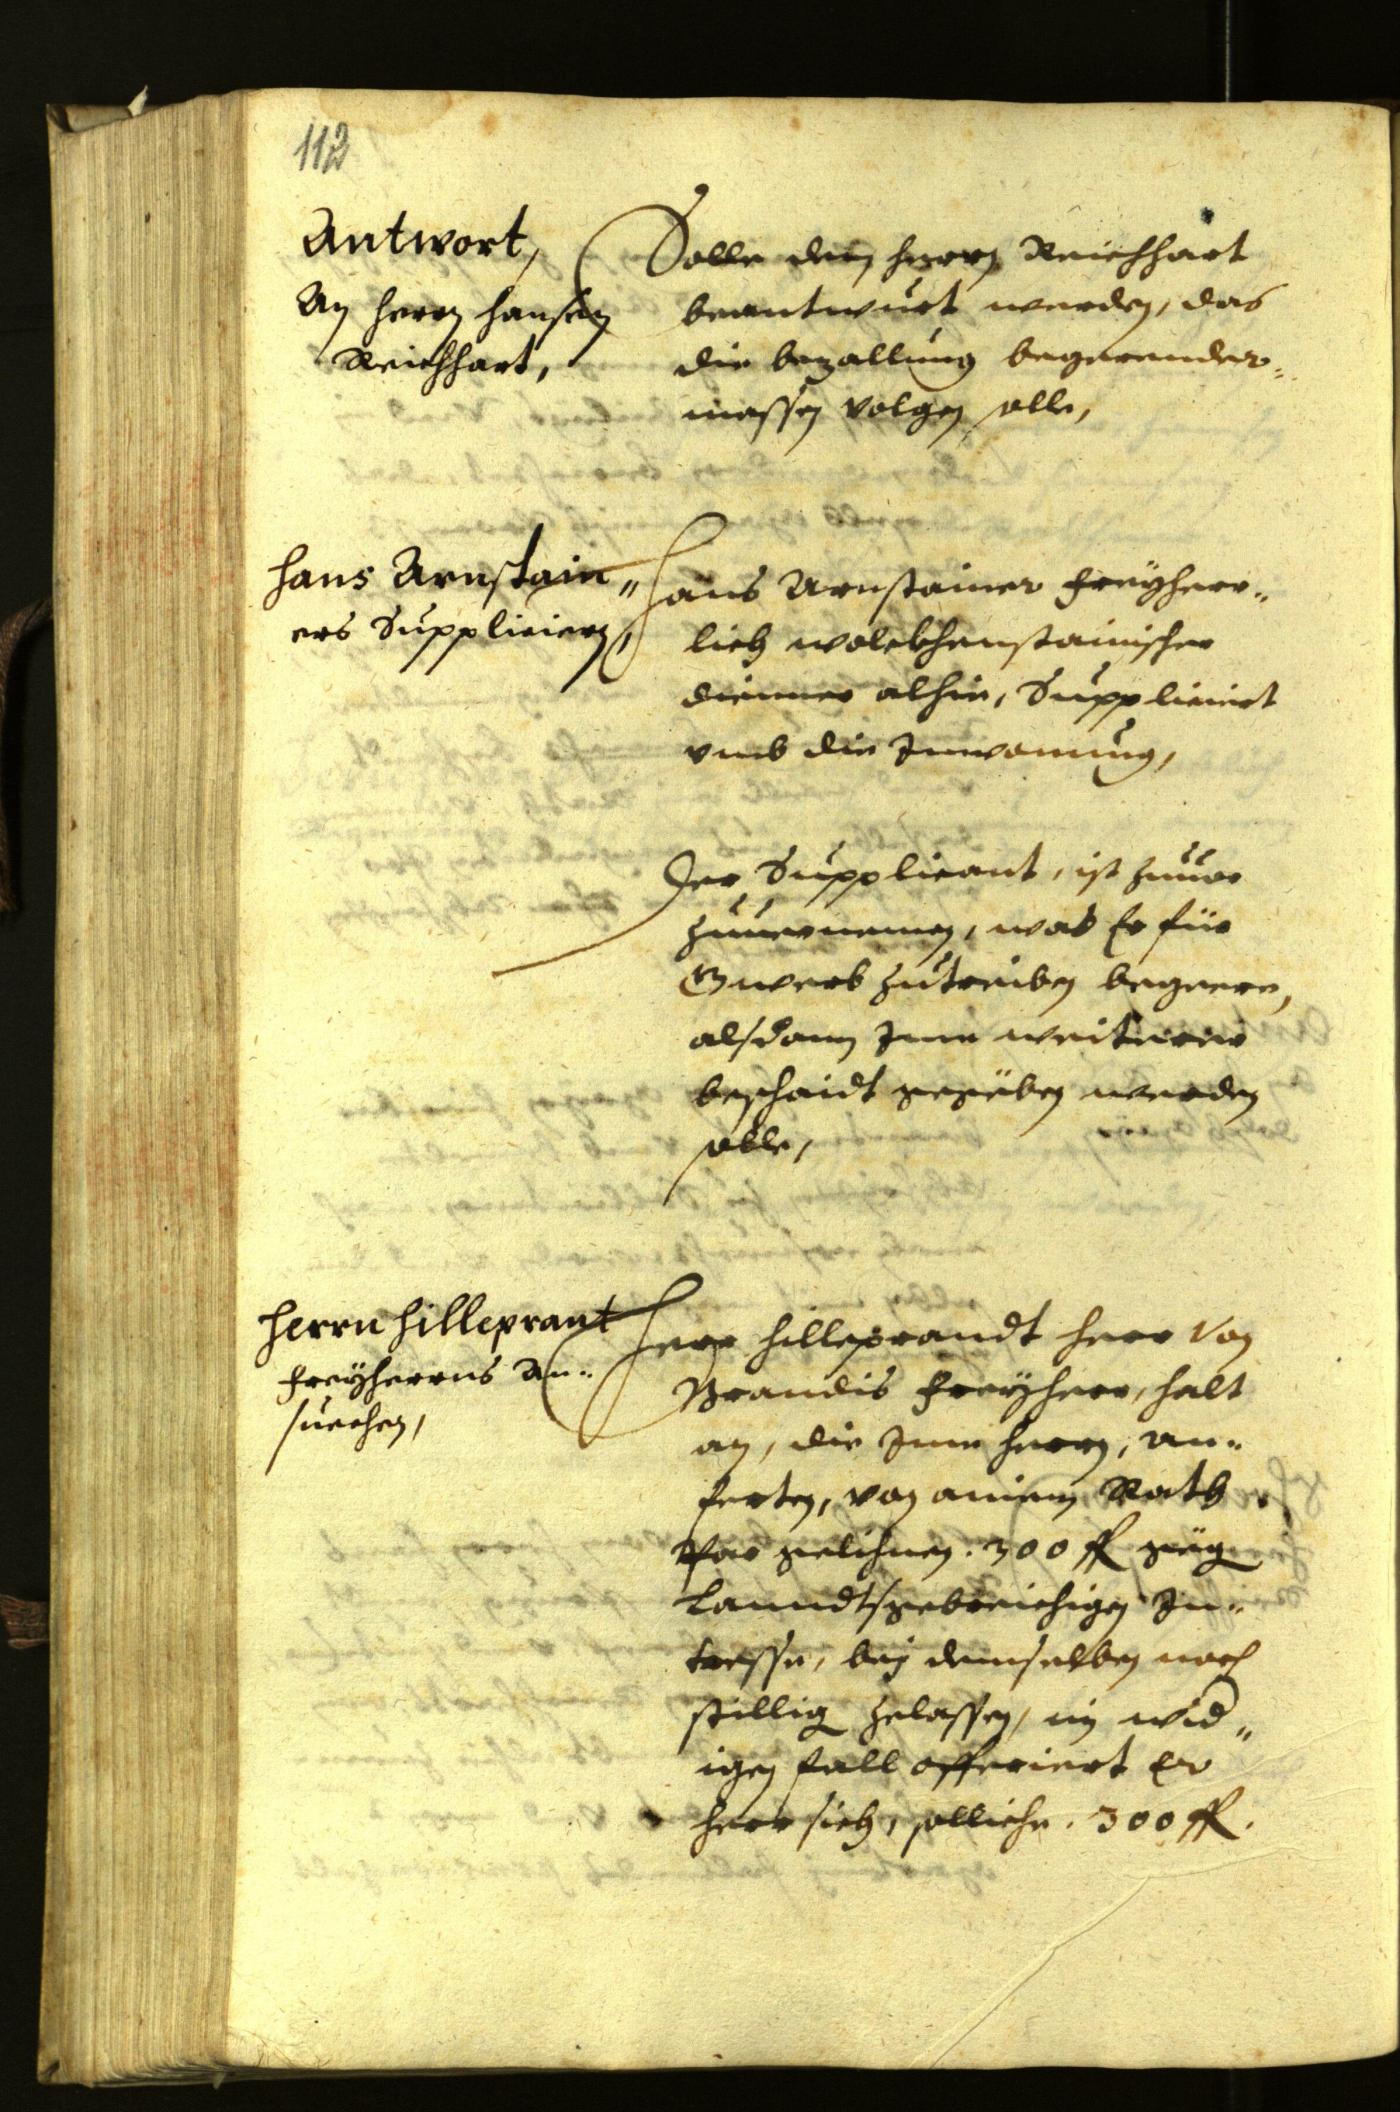 112
Antwort,
An herrn hansen
Reichhart,
Solle dem herrn Reichhart
beantwurt werden, das
die bezallung begerender„
massen volgen solle,
hans Arnstain„
ers Suppliciern,
Hans Arnstainer freyherr„
lich wolckhenstainischer
dienner alhie, Suppliciert
vmb die Inwonung,
Der Supplicant, ist zuuor
zuuernemen, was Er für
Gwerb zutreiben begeere,
alsdann Ime weiterer
beschaidt gegeben werden
solle,
Herrn Hilleprant
freyherrns An„
suechen,
Herr Hilleprandt herr von
Brandis freyherr, halt
an, die Ime herrn, an„
ferten, von ainem Rath
par gelichnen. 300 fl gegen
Lanndtsgebreichigen In„
tresse, bey demselben noch
stillig zelassen, im wid„
igen fall offeriert Er
herr sich, solliche. 300 fl.